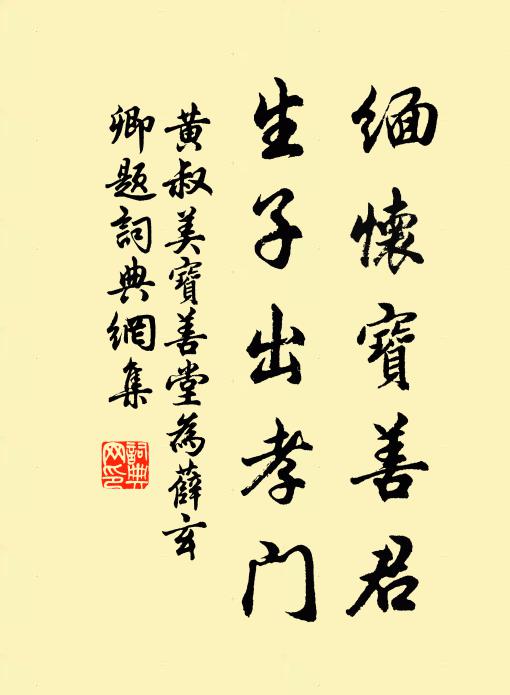 緬懷寶善君
生子出孝門
黄叔美寶善堂為薛玄
卿題詞典網集
詞典
网印